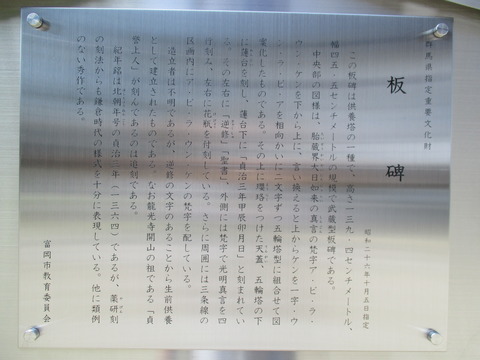 群馬県指定重要文化財
板碑
昭和二十六年十月五日指定
この板碑は供養塔の一種で、高さ一三九・四センチメートル、
幅四五・五センチメートルの規模で武蔵型板碑である。
中央部の図様は、胎蔵界大日如来の真言の梵字ア・ビ・ラ・
ウン・ケンを下から上に、言い換えると上からケンを一字・ウ
ン・ラ・ビ・アを相向かいに二文字ずつ五輪塔型に組合せて図
案化したものである。その上に瓔珞をつけた天蓋、五輪塔の下
に蓮台を刻し、蓮台下に「貞治三年甲辰卯月日」と刻まれてい
る。その左右に「逆修」「聖書」、外側には梵字で光明真言を四
行刻み、左右に花瓶を付刻している。さらに周囲には三条線の
区画内にア・ビ・ラ・ウン・ケンの梵字を配している。
造立者は不明であるが、逆修の文字のあることから生前供養
として建立されたものである。なお龍光寺開山の祖である「貞
誉上人」が刻んであるのは追刻である。
紀年銘は北朝年号の貞治三年（一三六四）であるが、薬研刻
の刻法からも鎌倉時代の様式を十分に表現している。他に類例
のない秀作である。
富岡市教育委員会